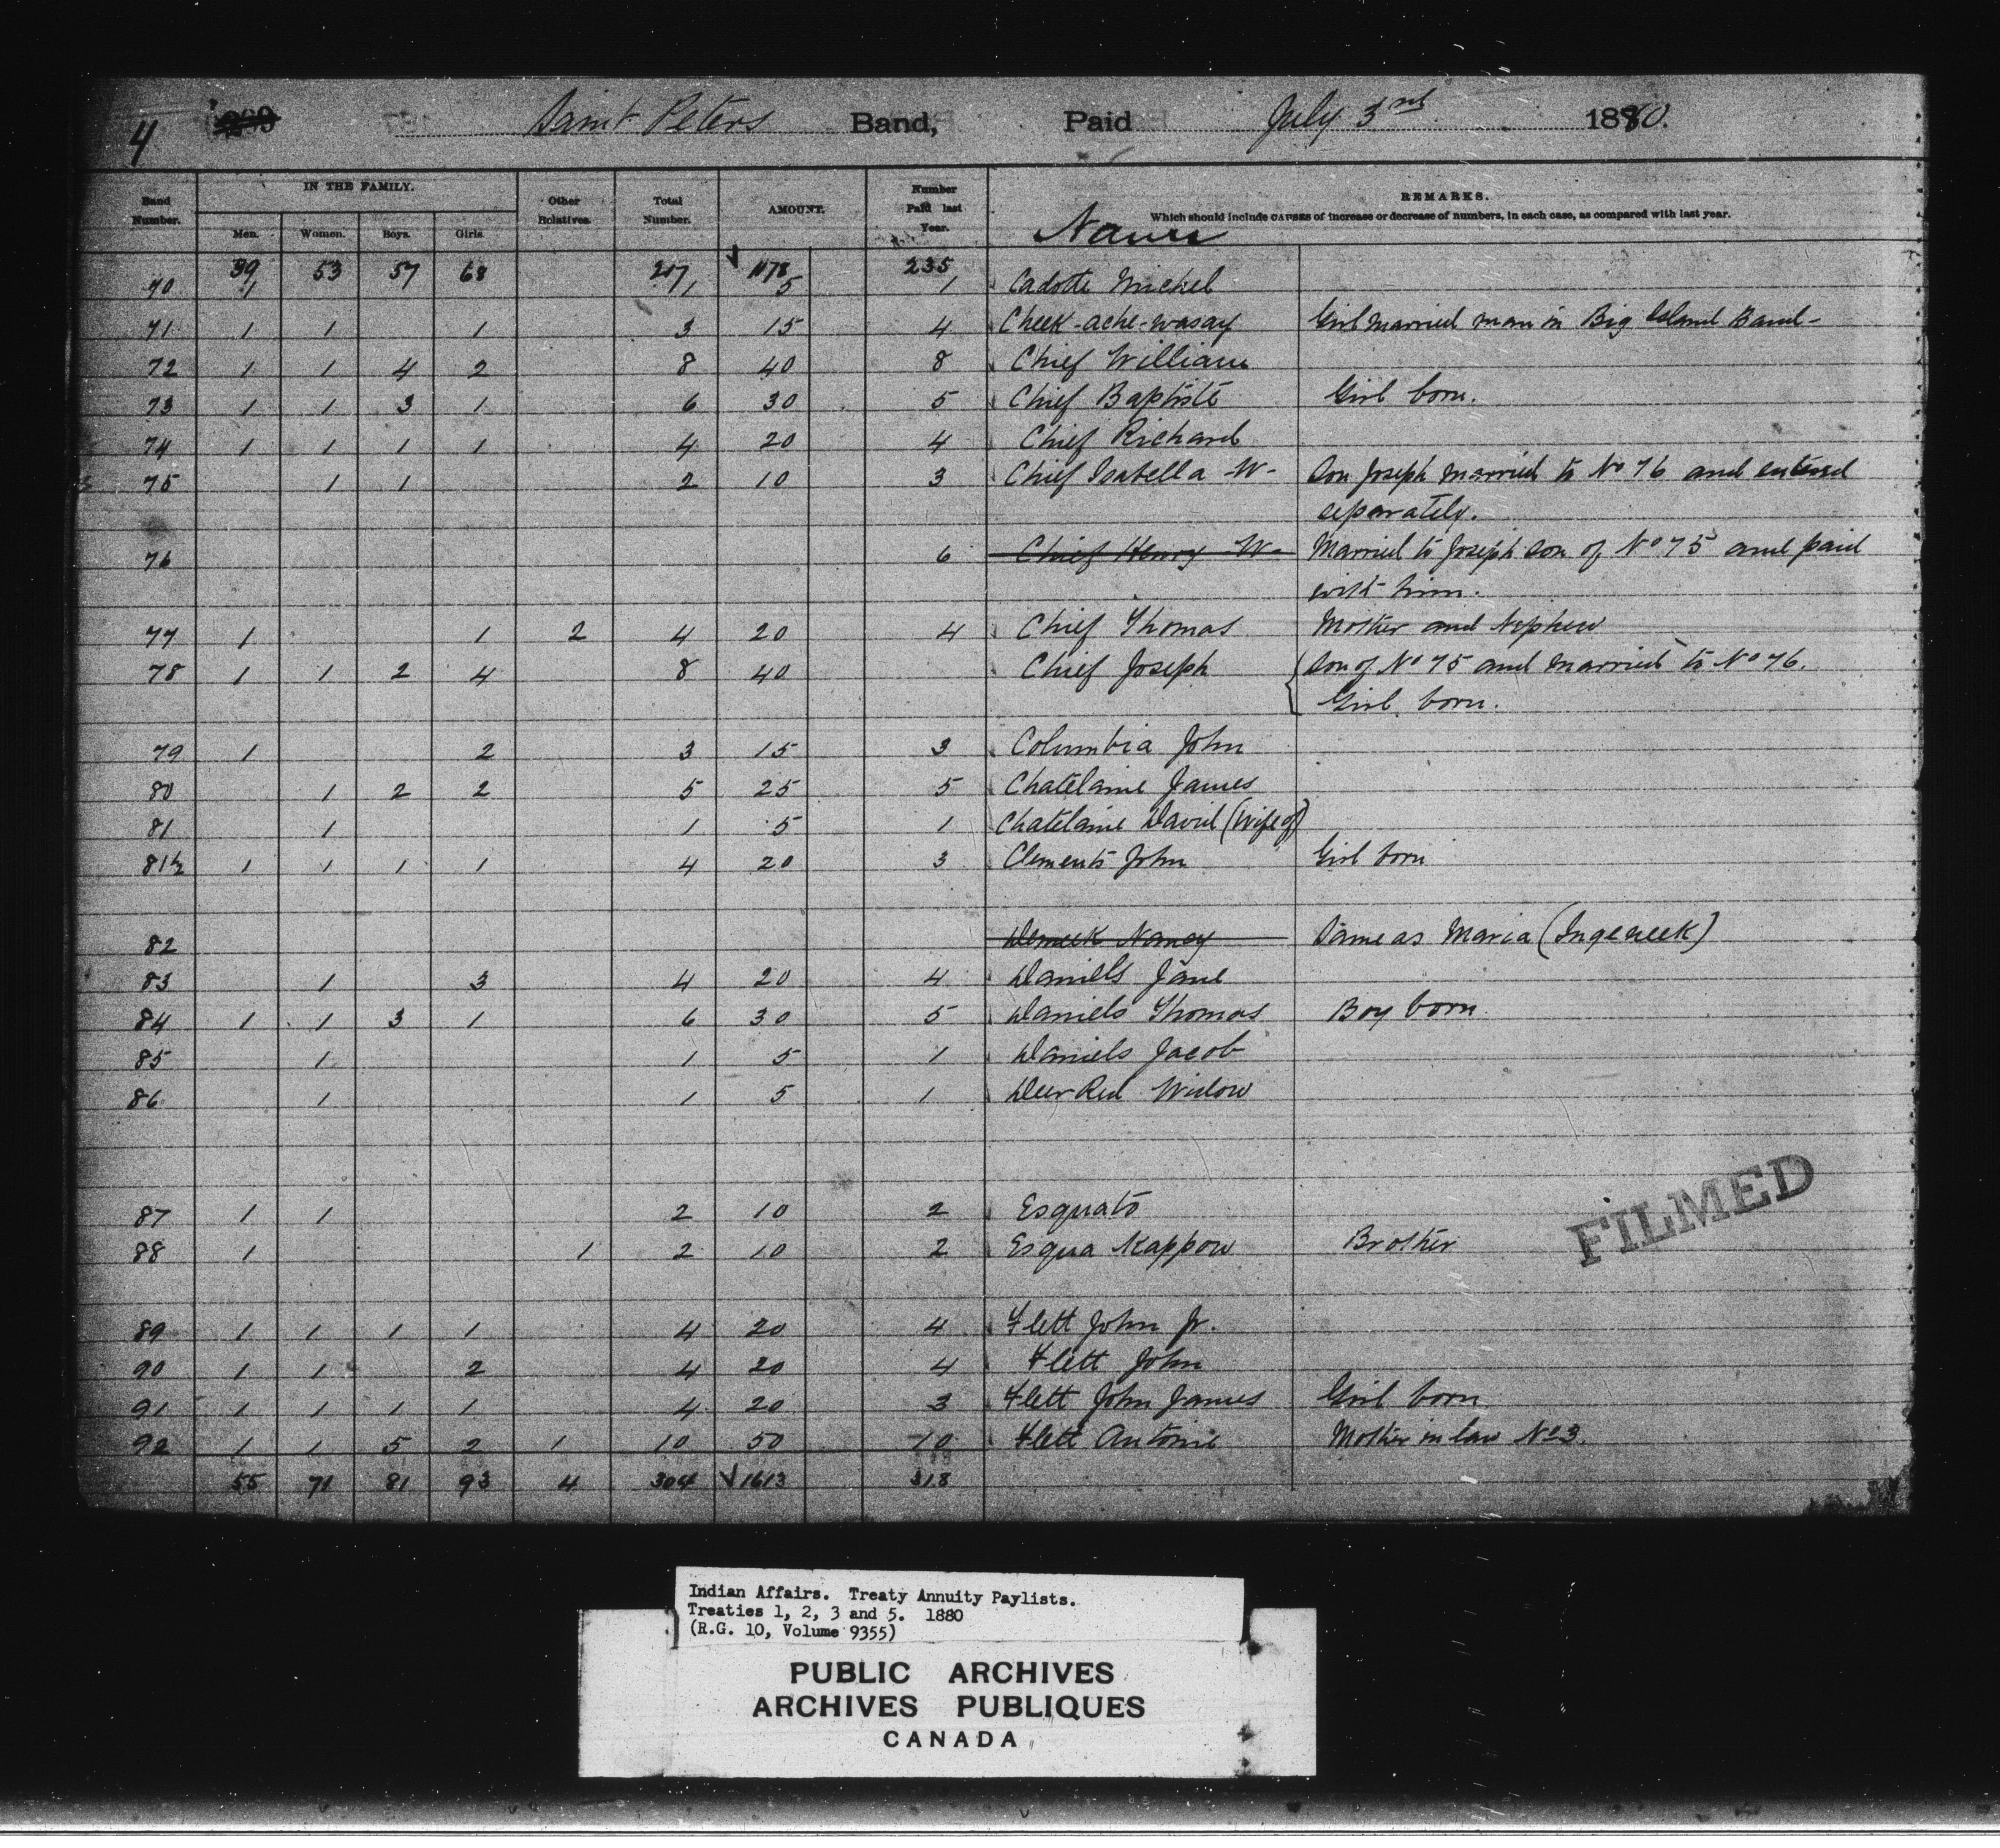 4 Saint Peters Band, Paid July 3rd 1880.
Band Number. IN THE FAMILY. Other Relatives. Total Number. AMOUNT. Number Paid last Year. REMARKS.
Men. Women. Boys. Girls. Which should include CAUSES of increase or decrease of numbers, in each case, as compared with last year.
Name
39 53 57 68 217 1178 235
70 1 1 5 1 Cadotte Michel
71 1 1 1 3 15 4 Cheek-ache-wasay Girl married man in Big Island Band-
72 1 1 4 2 8 40 8 Chief William
73 1 1 3 1 6 30 5 Chief Baptiste Girl born.
74 1 1 1 1 4 20 4 Chief Richard
75 1 1 2 10 3 Chief Isabella -W- Son Joseph married to No 76 and entered
separately.
76 6 Chief Henry -W- Married to Joseph son of No 75 and paid
with him.
77 1 1 2 4 20 4 Chief Thomas Mother and Nephew
78 1 1 2 4 8 40 Chief Joseph Son of No 75 and married to No 76.
Girl born.
79 1 2 3 15 3 Columbia John
80 1 2 2 5 25 5 Chatelaine James
81 1 1 5 1 Chatelaine David (Wife of)
81½ 1 1 1 1 4 20 3 Clements John Girl born
82 Nancy Same as Maria (Ingeneek)
83 1 3 4 20 4 Daniels Jane
84 1 1 3 1 6 30 5 Daniels Thomas Boy born
85 1 1 5 1 Daniels Jacob
86 1 1 5 1 Deer Red Widow
87 1 1 2 10 2 Esquato
88 1 1 2 10 2 Esqua Kappow Brother
89 1 1 1 1 4 20 4 Flett John Jr.
90 1 1 2 4 20 4 Flett John
91 1 1 1 1 4 20 3 Flett John James Girl born
92 1 1 5 2 1 10 50 10 Flett Antoine Mother in law No 3.
55 71 81 93 4 304 1613 318
FILMED
Indian Affairs. Treaty Annuity Paylists.
Treaties 1, 2, 3 and 5. 1880
(R.G. 10, Volume 9355)
PUBLIC ARCHIVES
ARCHIVES PUBLIQUES
CANADA